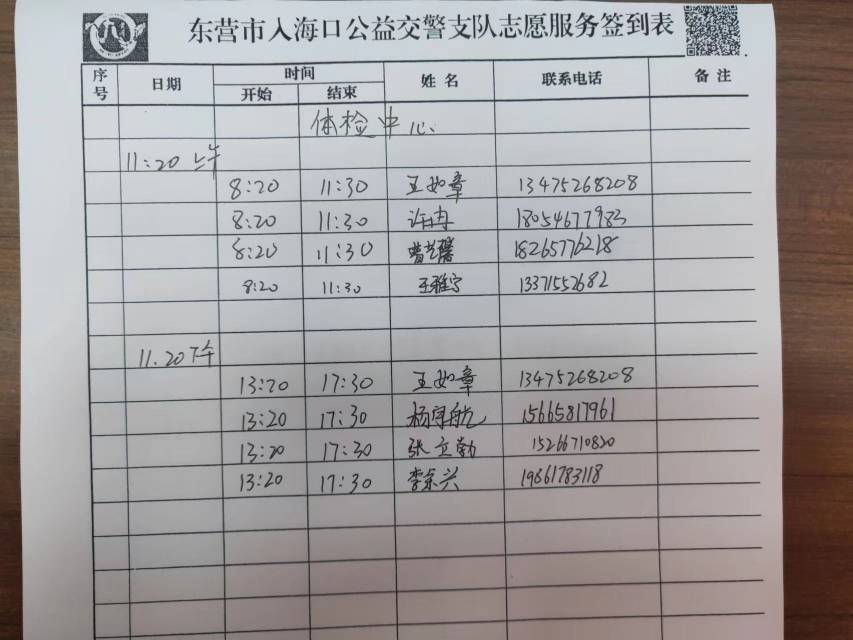 东营市入海口公益交警支队志愿服务签到表
序号 日期 时间 姓名 联系电话 备注
开始 结束
体检中心
11:20 上午
8:20 11:30 王如章 13475268208
8:20 11:30 许冉 18054677983
8:20 11:30 18265776218
8:20 11:30 王雅宁 13371552682
11.20 下午
13:20 17:30 王如章 13475268208
13:20 17:30 杨宇航 15665817961
13:20 17:30 张立勤 15266710820
13:20 17:30 19661783118